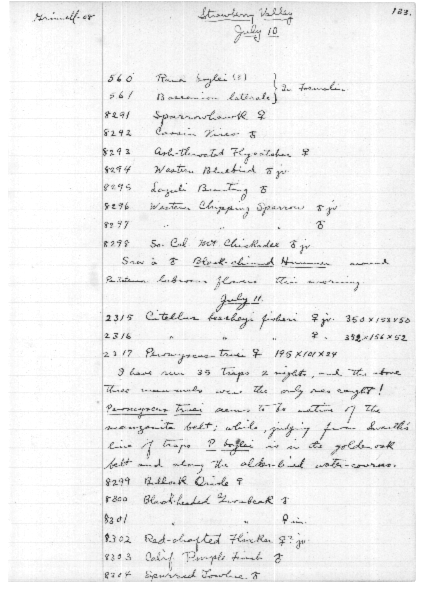 Grinnell-08
Strawberry Valley
123.
July 10
560 Rana boylei (?)
561 Bascanion laterale } In Formalin
8291 Sparrowhawk ♀
8292 Cassin Vireo ♂
8293 Ash-throated Flycatcher ♀
8294 Western Bluebird ♂ jv
8295 Lazuli Bunting ♂
8296 Western Chipping Sparrow ♂ jv
8297 " " " ♂
8298 So. Cal Mt Chickadee ♂ jv
Saw a ♂ Black-chinned Hummer around
Pentstemon labrosus flowers this morning.
July 11.
2315 Citellus beecheyi fisheri ♀ jv. 350×153×50
2316 " " " ♀. 392×156×52
2317 Peromyscus truei ♀ 195×101×24
I have run 35 traps 2 nights, and the above
three mammals were the only ones caught!
Peromyscus truei seems to be native of the
manzanita belt; while, judging from
line of traps P. boylei is in the golden oak
belt and along the alder-lined water-courses.
8299 Bullock Oriole ♀
8300 Black-headed Grosbeak ♂
8301 " " ♀ im.
8302 Red-shafted Flicker ♀? jv
8303 Calif Purple Finch ♂
8304 Spurred Towhee ♂